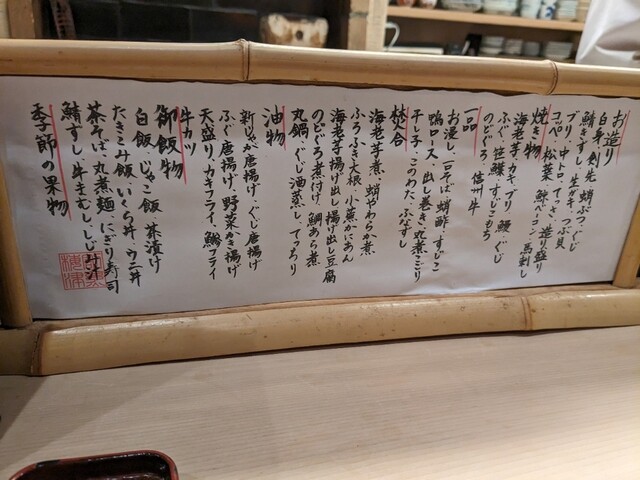 お造り
白身、剣先、蛸ぶつ、ぐじ
鯖きずし、生ガキ、つぶ貝
ブリ、中トロ、てっさ、造り盛り
コッペ、松葉、鯨ベーコン、馬刺し
焼き物
海老芋、カキ、ブリ、鰻、ぐじ
ふぐ、笹鰈、すじこもち
のどぐろ、信州牛
一品
お浸し、一口そば、蛸酢、すじこ
鴨ロース、出し巻き、丸煮こごり
干し子、このわた、ふなずし
焚合
海老芋煮、蛸やわらか煮
ふろふき大根、小蕪かにあん
海老芋揚げ出し、揚げ出し豆腐
のどぐろ煮付け、鯛あら煮
丸鍋、ぐじ酒蒸し、てっちり
油物
新じゃが唐揚げ、ぐじ唐揚げ
ふぐ唐揚げ、野菜かき揚げ
天盛り、カキフライ、鯵フライ
牛カツ
御飯物
白飯、じゃこ飯、茶漬け
たきこみ飯、いくら丼、ウニ丼
茶そば、丸煮麺、にぎり寿司
鯖すし、牛まむし、しじみ汁
季節の果物